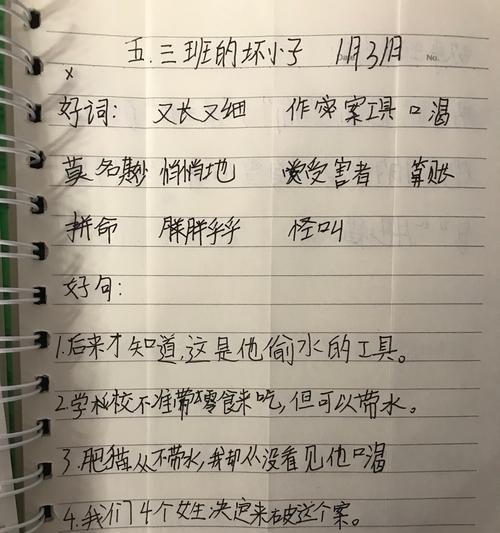 五.三班的坏小子 1月31日
x
好词: 又长又细 作案工具 口渴
莫名其妙 悄悄地 受害者 算账
拼命 胖胖乎乎 怪叫
好句:
1.后来才知道,这是他偷水的工具。
2.学校不准带零食来吃,但可以带水。
3.肥猫从不带水,我却从没看见他口渴
4.我们4个女生决定来破这个案。